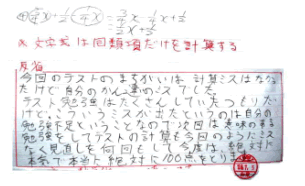 ※ 文字式は同類項だけを計算する
反省
今回のテストのまちがいは、計算ミスはなかっ
たけど自分のかん違いのミスでした。
テスト勉強はたくさんしていたつもりだ
けど、こういうミスが出たというのは自分の
勉強不足ということなので次回は意味のある
勉強をしてテストの計算も今回のようなミス
なく見直しを何回もして今度は絶対に
本気で本当に絶対に100点をとります。